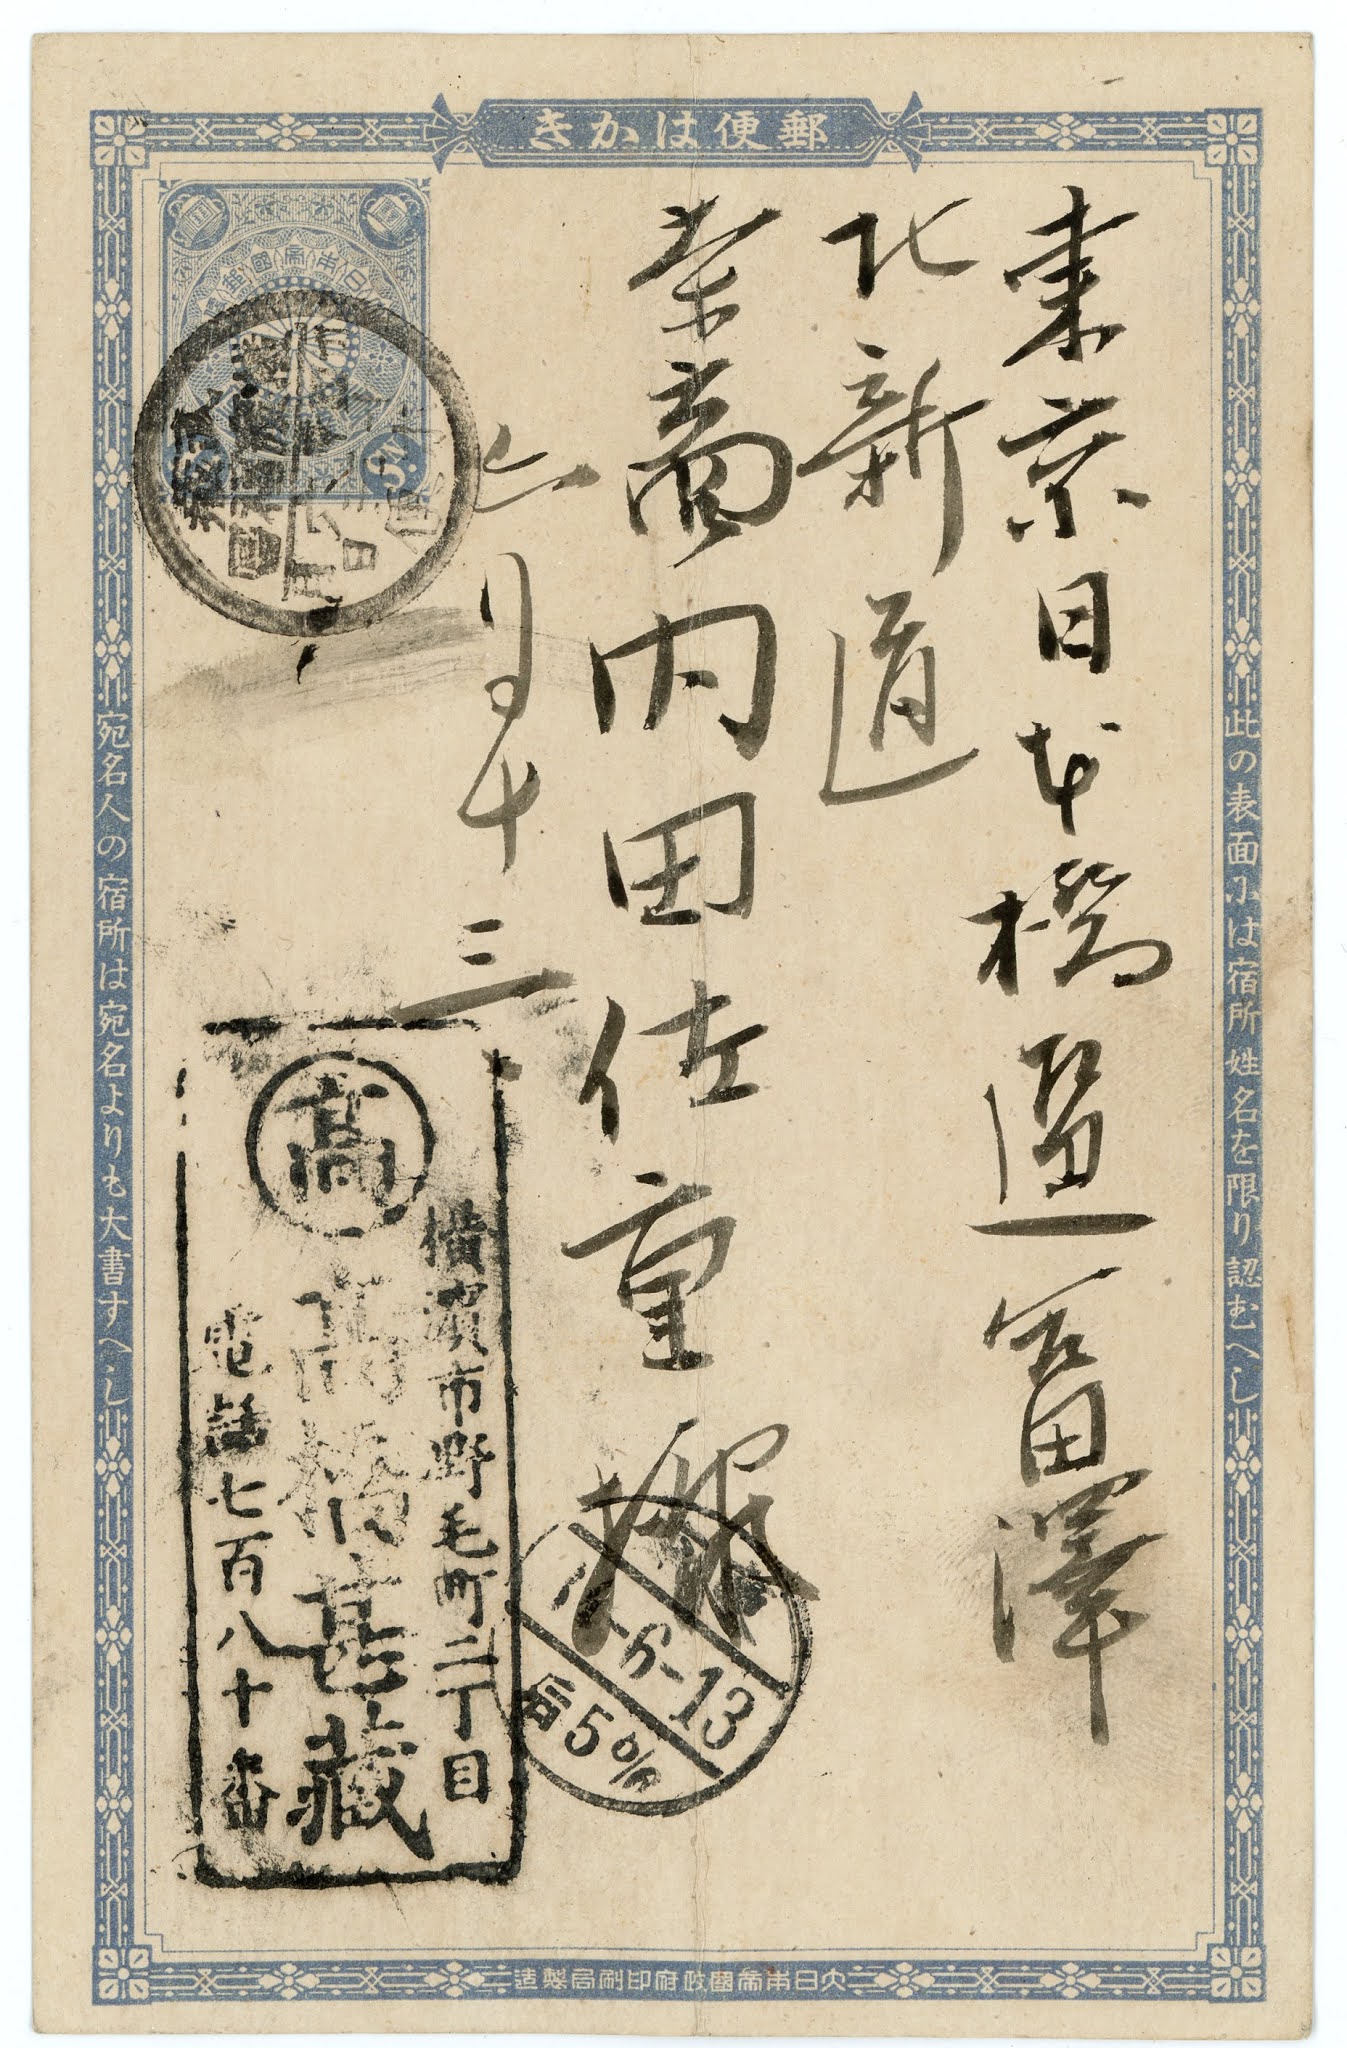 郵便はかき
此の表面には宿所姓名を限り認むへし
東京日本橋區富澤
北新道
内田佐重樣
六月十三
横濱市野毛町三丁目
高
高橋甚藏
電話七百八十番
6-13
后5
宛名人の宿所は宛名よりも大書すへし
大日本帝國政府印刷局製造